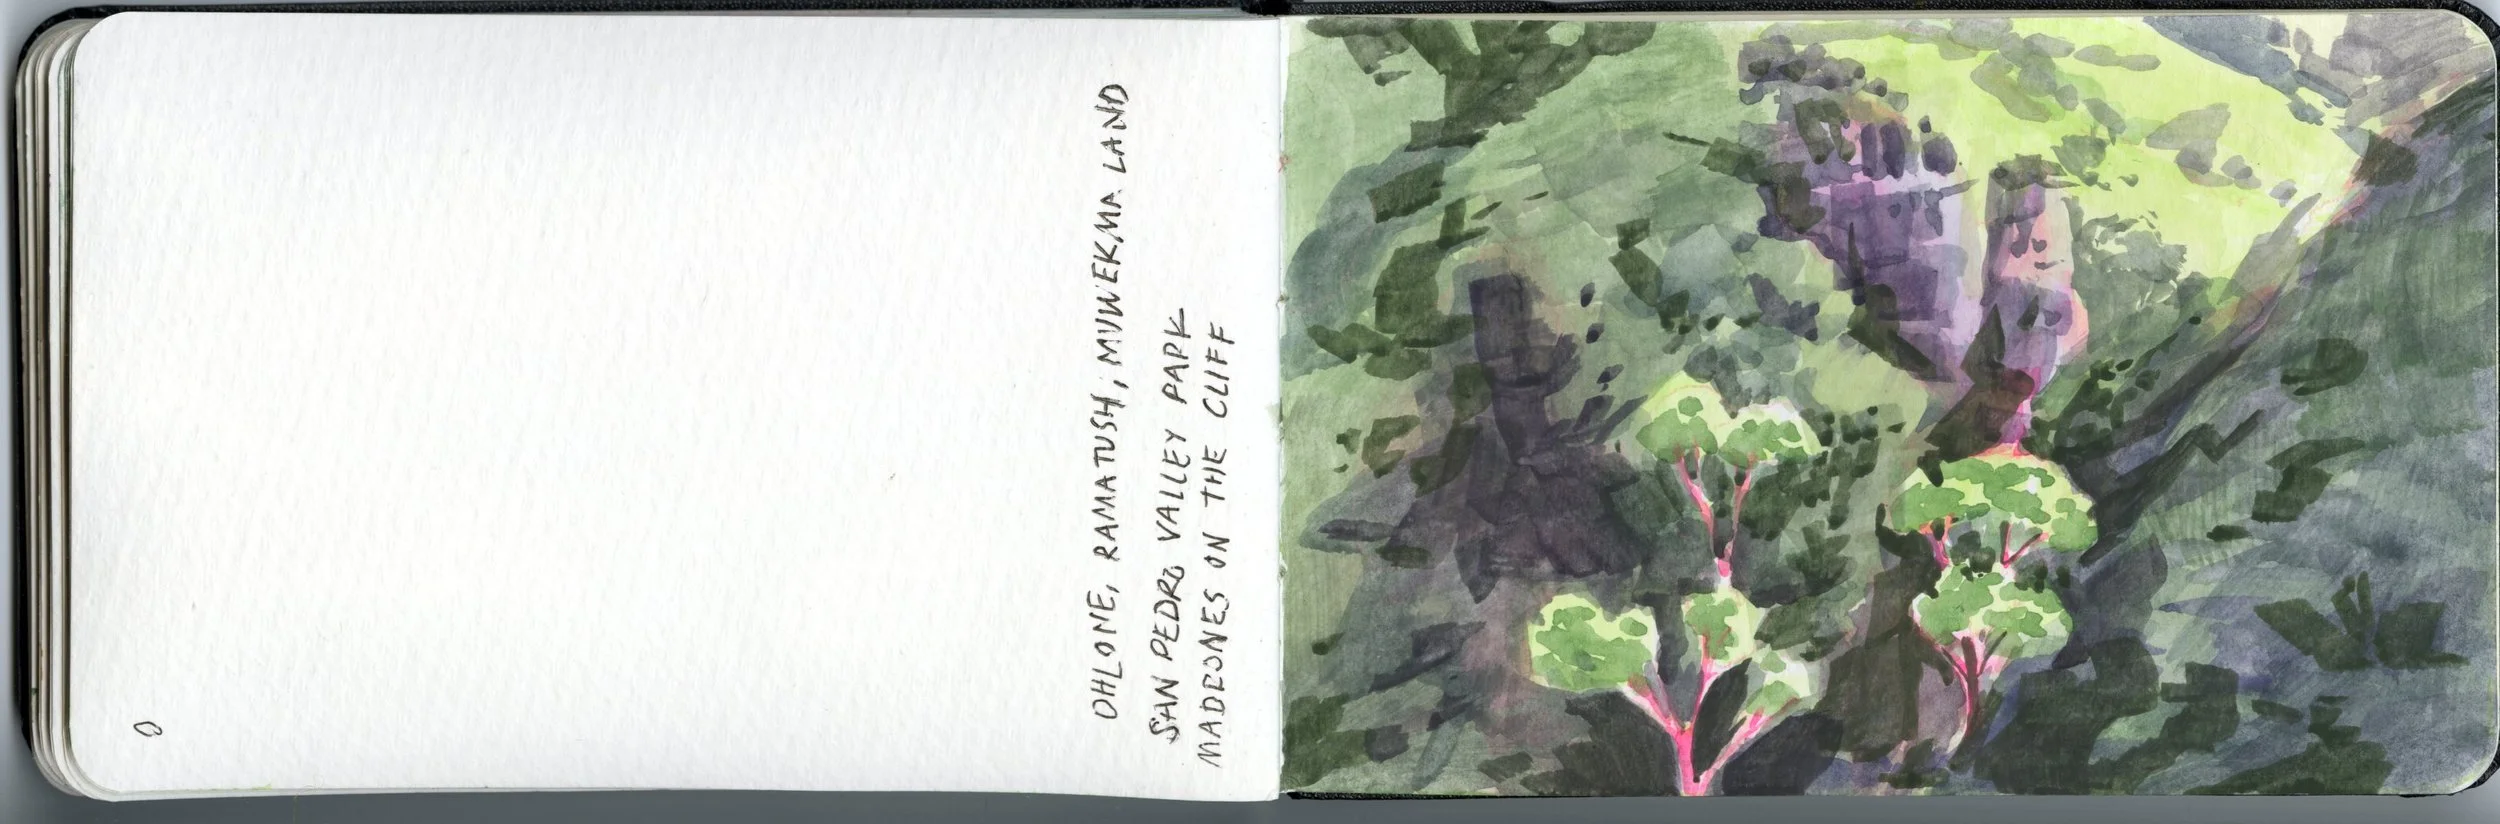 OHLONE, RAMATUSH, MUWEKMA LAND
SAN PEDRO VALLEY PARK
MADRONES ON THE CLIFF